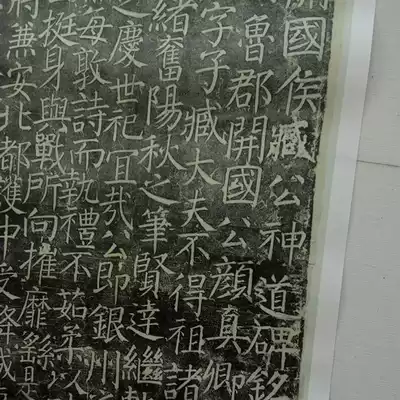 國侯臧公神道碑銘
魯郡開國公顏真卿
字子臧大夫不得祖諸
緒奮陽秋之筆賢達繼
之慶世祀宜哉公即銀州
母敦詩而執禮不茹柔以
挺身與戰所向摧靡繇是
兼安北都護中受降城